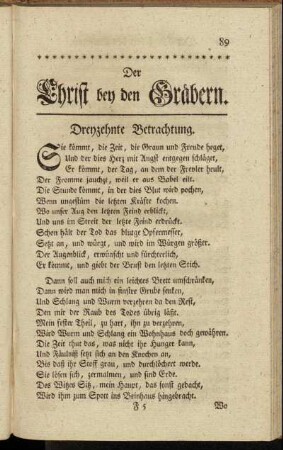 89
Der
Christ bey den Gräbern.
Dreyzehnte Betrachtung.
Sie kömmt, die Zeit, die Graun und Freude heget,
Und der dies Herz mit Angst entgegen schläget,
Er kömmt, der Tag, an dem der Frevler heult,
Der Fromme jauchzt, weil er aus Babel eilt.
Die Stunde kömmt, in der dies Blut wird pochen,
Wenn ungestüm die letzten Kräfte kochen.
Wo unser Aug den letzten Feind erblickt,
Und uns im Streit der letzte Feind erdrückt.
Schon hält der Tod das blutge Opfermesser,
Setzt an, und würgt, und wird im Würgen größer.
Der Augenblick, erwünscht und fürchterlich,
Er kömmt, und giebt der Brust den letzten Stich.
Dann soll auch mich ein leichtes Brett umschränken,
Dann wird man mich in finstre Grube senken,
Und Schlang und Wurm verzehren da den Rest,
Den mir der Raub des Todes übrig läßt.
Mein fester Theil, zu hart, ihn zu verzehren,
Wird Wurm und Schlang ein Wohnhaus doch gewähren.
Die Zeit thut das, was nicht ihr Hunger kann,
Und Fäulniß setzt sich an den Knochen an,
Bis daß ihr Stoff grau, und durchlöchert werde.
Sie lösen sich, zermalmen, und sind Erde.
Des Witzes Sitz, mein Haupt, das sonst gedacht,
Wird ihm zum Spott ins Beinhaus hingebracht.
F 5 Wo